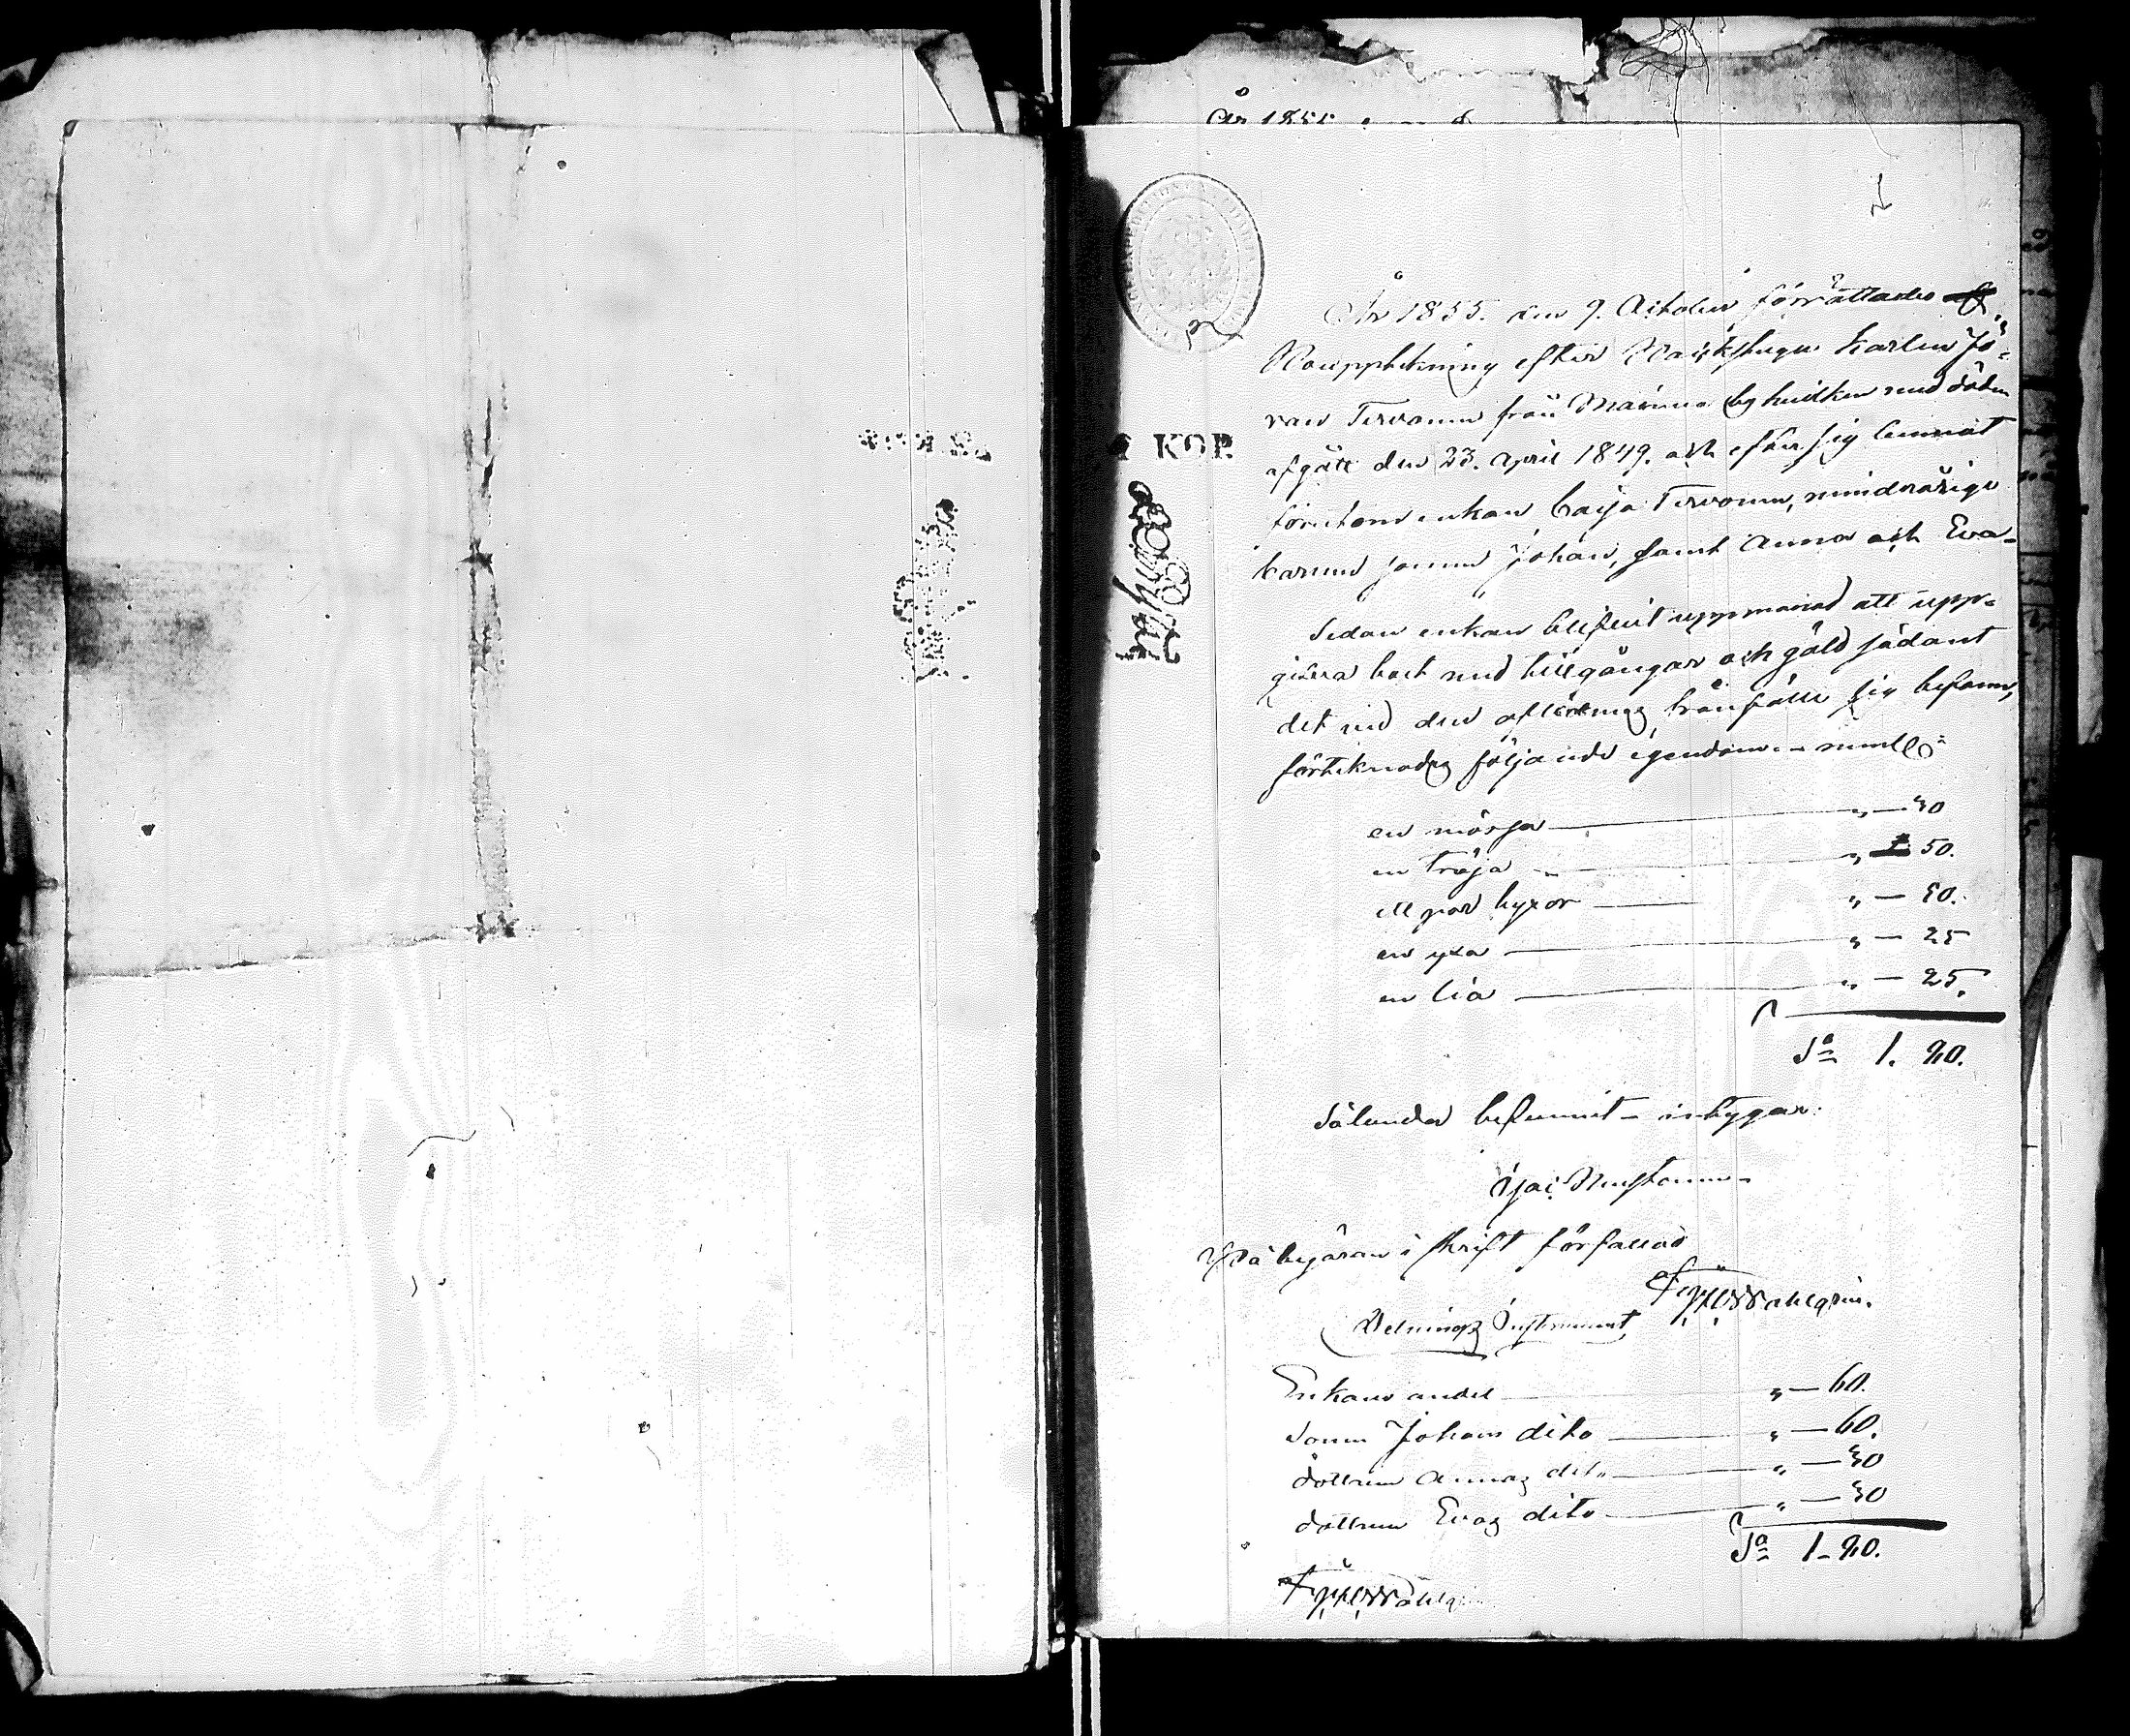 År 1855
År 1855. den 9. October förrättades
Bouppteckning efter Backstugu Karlen Jö-
ran Tervonen från Mainua by hvilken med döden
afgått den 23. April 1849. och efter sig lemnat
förutom enkan Caisa Tervonen, minderårige
barnen sonen Johan, samt Anna och Eva-
Sedan enkan blifvit uppmanad att upp-
gifva boets med tillgångar och gäld sådant
det vid den aflidnes frånfälle sig befann,
förtecknades följande egendom
en mössa " — 40
en tröja " 50.
ett par byxor " — 50.
en yxa " — 25
en lia " — 25.
S:a 1. 90.
Sålunda befunnit - intygar:
På begäran i skrift författad
af
Delnings Instrument
Enkans andel " — 60.
Sonen Johans dito " — 60.
dottren Annas dito " — 30
dottren Evas dito " — 30
S:a 1 - 80.
KOP.